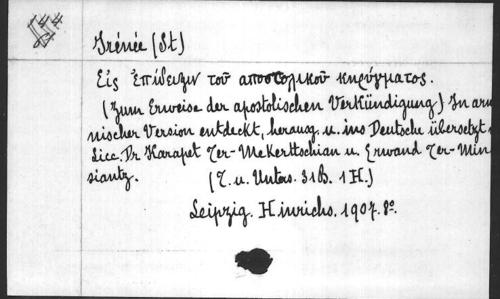 Irénée (St)
Εἰς ἐπίδειξιν τοῦ αποστολικοῦ κηρύγματος.
(Zum Erweise der apostolischen Verkündigung) In arm
nischer Version entdeckt, herausg. u. ins Deutsche übersetzt
Licc. Dr Karapet Ter-Mekerttschian u. Erwand Ter-Min
siantz. (T. u. Unters. 31 B. 1 H.)
Leipzig. Hinrichs. 1907. 8º.